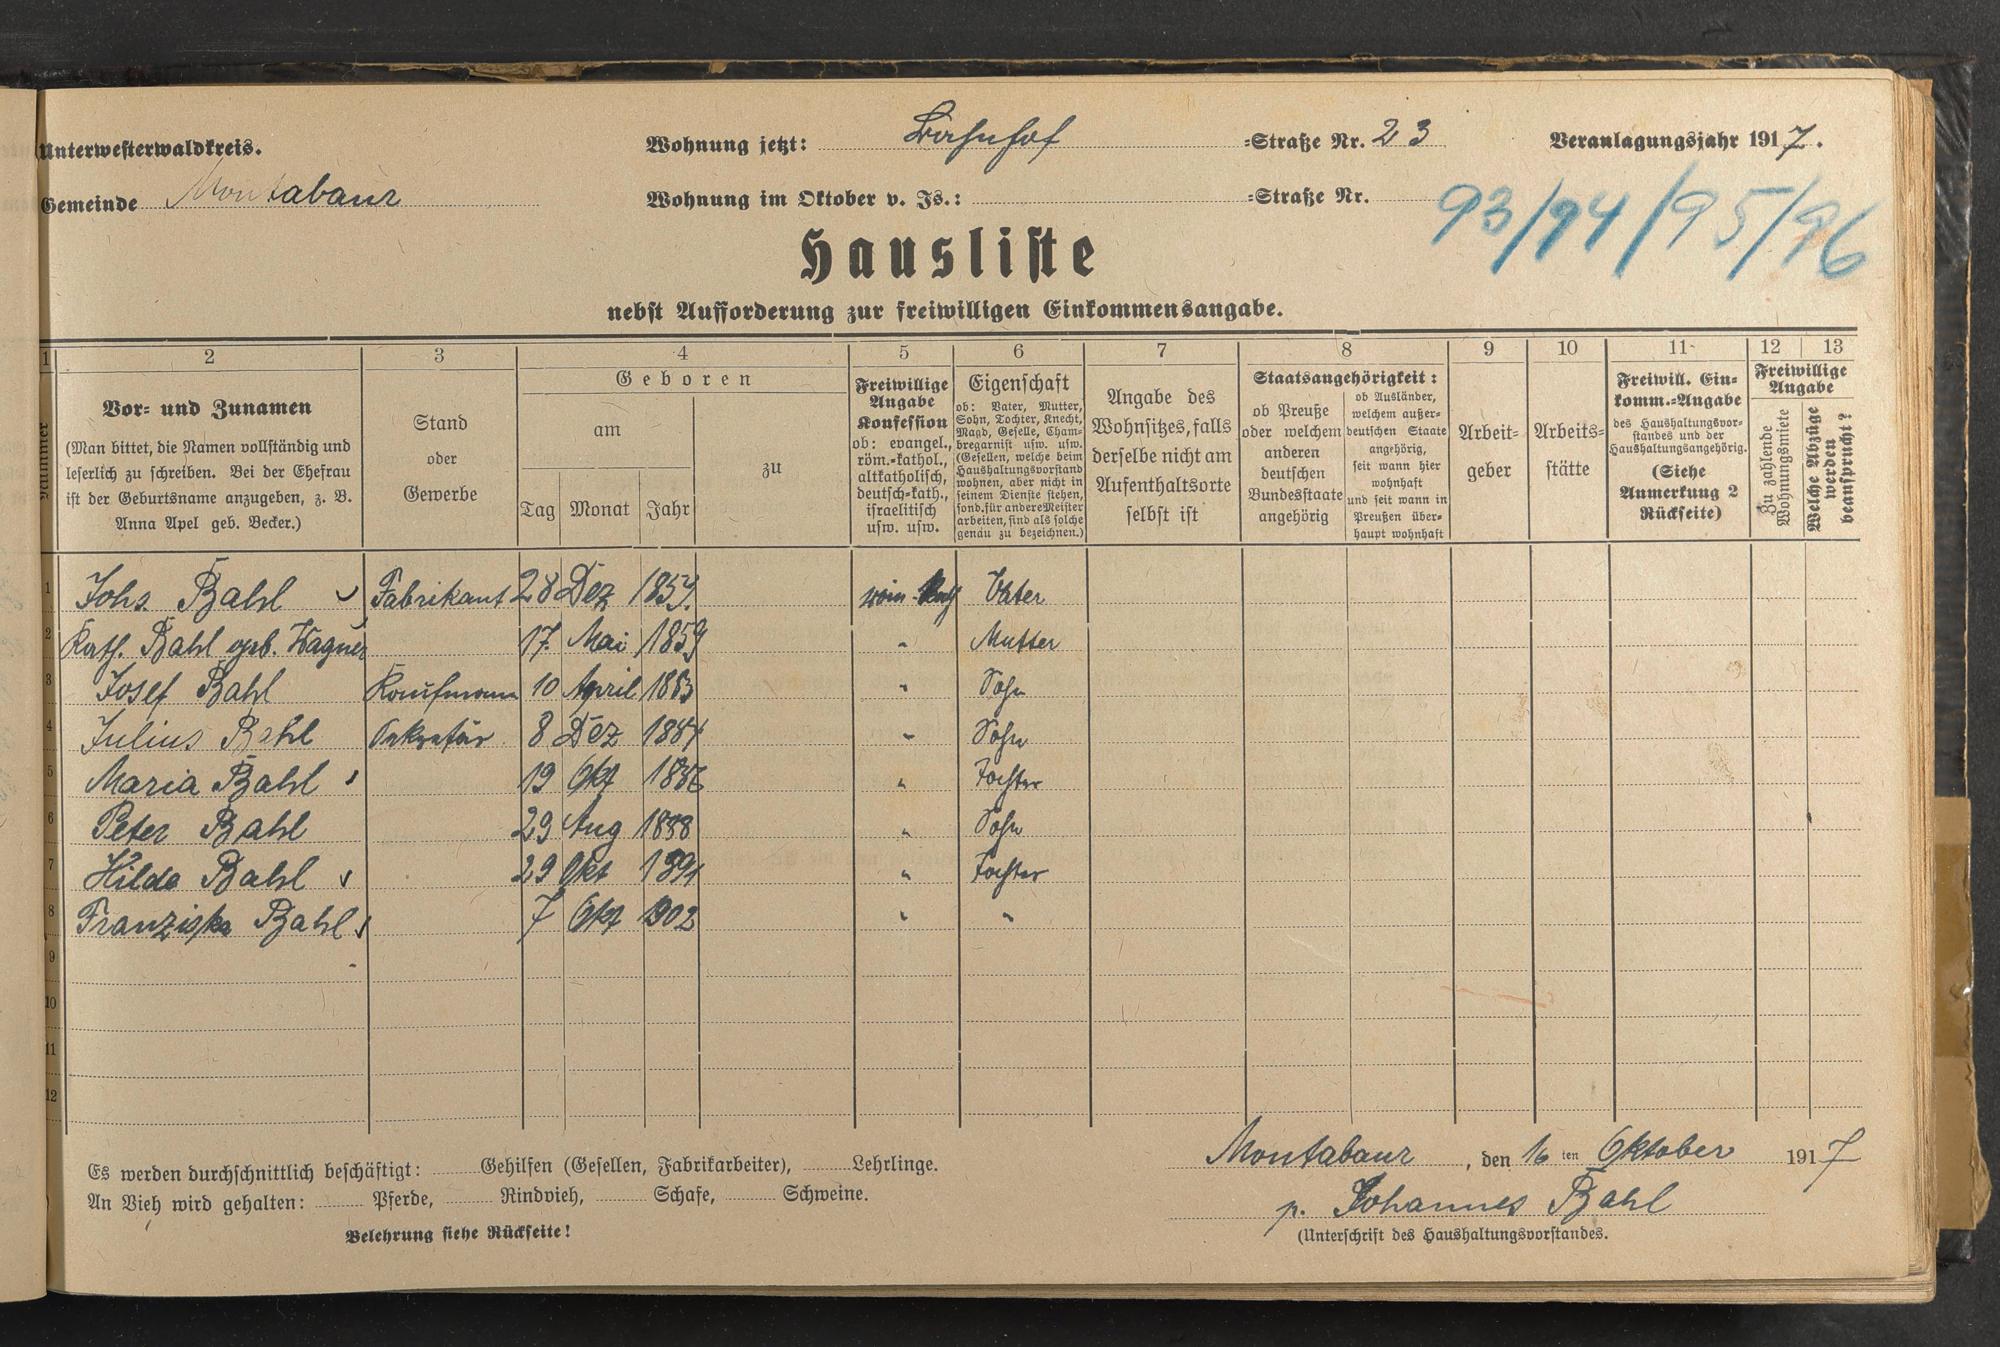 Unterwesterwaldkreis.
Wohnung jetzt: Bahnhof -Straße Nr. 23
Veranlagungsjahr 1917.
Gemeinde Montabaur
Wohnung im Oktober v. Js.: -Straße Nr.
93/94/95/96
Hausliste
nebst Aufforderung zur freiwilligen Einkommensangabe.
1 2 3 4 5 6 7 8 9 10 11 12 13
Nummer
Vor- und Zunamen
(Man bittet, die Namen vollständig und
leserlich zu schreiben. Bei der Ehefrau
ist der Geburtsname anzugeben, z. B.
Anna Apel geb. Becker.)
Stand
oder
Gewerbe
Geboren
am
Tag Monat Jahr
zu
Freiwillige
Angabe
Konfession
ob: evangel.,
röm.-kathol.,
altkatholisch,
deutsch-kath.,
israelitisch
usw. usw.
Eigenschaft
ob: Vater, Mutter,
Sohn, Tochter, Knecht,
Magd, Geselle, Cham-
bregarnist usw. usw.
(Gesellen, welche beim
Haushaltungsvorstand
wohnen, aber nicht in
seinem Dienste stehen,
sond. für andere Meister
arbeiten, sind als solche
genau zu bezeichnen.)
Angabe des
Wohnsitzes, falls
derselbe nicht am
Aufenthaltsorte
selbst ist
Staatsangehörigkeit:
ob Preuße
oder welchem
anderen
deutschen
Bundesstaate
angehörig
ob Ausländer,
welchem außer-
deutschen Staate
angehörig,
seit wann hier
wohnhaft
und seit wann in
Preußen über-
haupt wohnhaft
Arbeit-
geber
Arbeits-
stätte
Freiwill. Ein-
komm.-Angabe
des Haushaltungsvor-
standes und der
Haushaltungsangehörig.
(Siehe
Anmerkung 2
Rückseite)
Freiwillige
Angabe
Zu zahlende
Wohnungsmiete
Welche Abzüge
werden
beansprucht?
1 Johs. Bahl Fabrikant 28 Dez Vater
2 Kath. Bahl geb. Wagner 17. Mai 1859 " Mutter
3 Josef Bahl Kaufmann 10 April 1883 " Sohn
4 Julius Bahl Sekretär 8 Dez 1884 " Sohn
5 Maria Bahl 19 Okt 1886 " Tochter
6 Peter Bahl 29 Aug 1888 " Sohn
7 Hilda Bahl 29 Okt 1891 " Tochter
8 Franziska Bahl 7 Okt 1902 " "
9
10
11
12
Es werden durchschnittlich beschäftigt: Gehilfen (Gesellen, Fabrikarbeiter), Lehrlinge.
An Vieh wird gehalten: Pferde, Rindvieh, Schafe, Schweine.
Belehrung siehe Rückseite!
Montabaur, den 16 ten Oktober 1917
p. Johannes Bahl
(Unterschrift des Haushaltungsvorstandes.